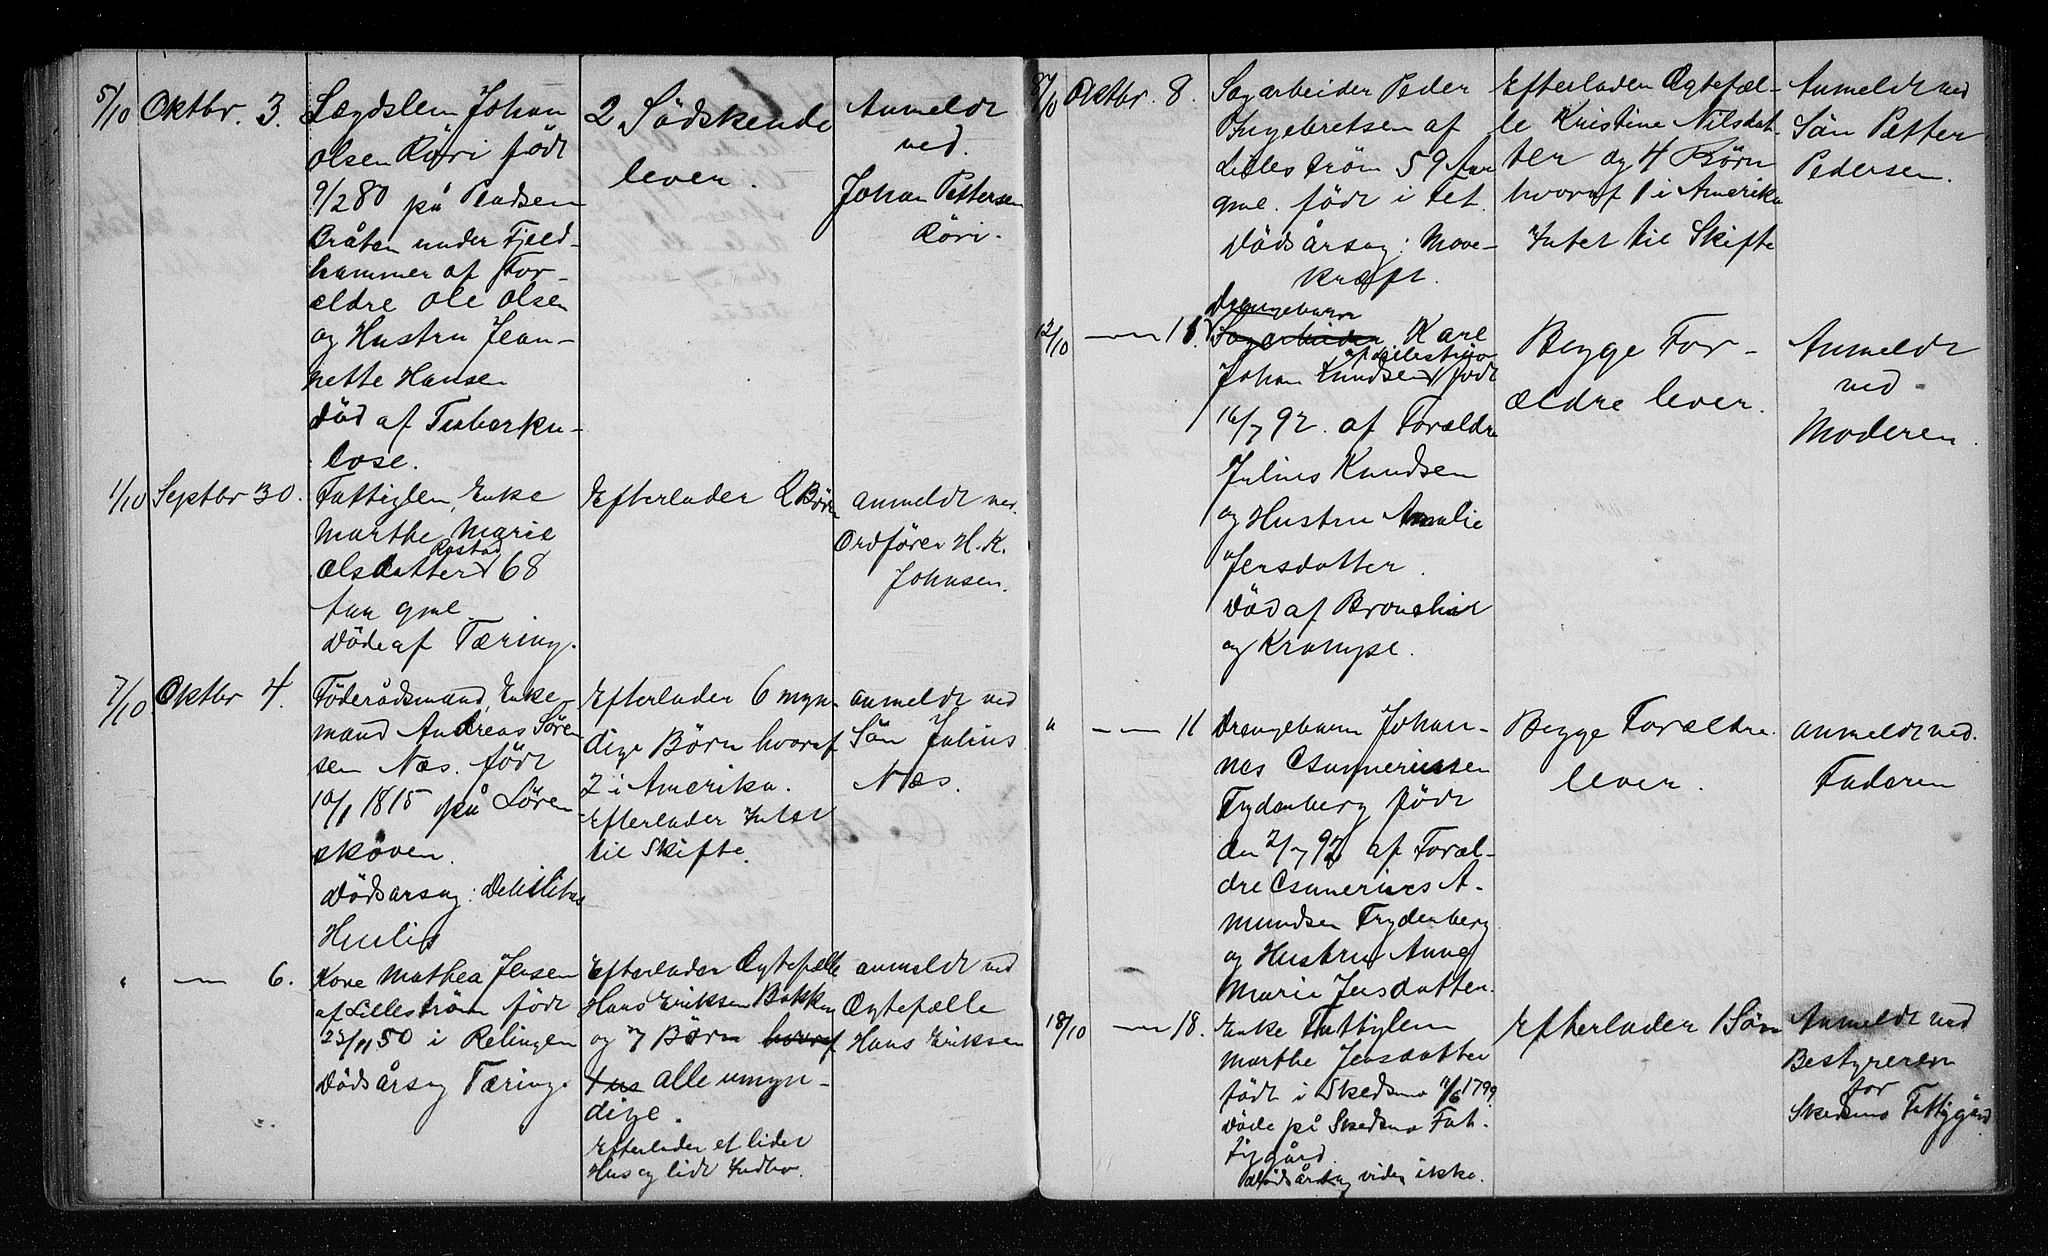 5/10 Oktbr. 3.
Lægdslem Johan
Olsen Röri født
9/2 80 på
Bråten under Fjeld-
hammer af For-
ældre Ole Olsen
og Hustru Jean-
nette Hansen
Död af Tuberku-
lose.
2 Södskende
lever.
Anmeldt
ved.
Johan Pettersen
Röri.
1/10 Septbr 30.
Fattiglem, Enke
Marthe Marie
Rostad
Olsdatter 68
gml.
Döde af Tæring.
Efterlader 2 Börn
anmeldt ved.
Ordförer H. K.
Johnsen.
7/10 Oktbr 4.
Föderådsmand, Enke-
mand Andreas Sören-
sen Næs. født
10/1 1815 på Lören-
skoven.
Dödsårsag: Debilitas
Efterlader 6 myn-
dige Börn hvoraf
2 i Amerika.
Efterlader Intet
til Skifte.
anmeldt ved
Sön Julius
Næs.
" — 6.
Kone Mathea Jensen
af Lilleström født
23/11 50 i Relingen
Dödsårsag Tæring.
Efterlader Ægtefælle
Hans Eriksen Bakken
og 7 Börn hvoraf
alle umyn-
dige.
Efterlader et lidet
Hus og lidt Indbo.
anmeldt ved
Ægtefælle
Hans Eriksen
8/10 Oktbr. 8.
Sagarbeider Peder
Ingebretsen af
Lilleström 59 Aar
gml. født i Fet.
Dödsårsag: Mave-
kræft.
Efterlader Ægtefæl-
le Kristine Nilsdat-
ter og 4 Börn
hvoraf 1 i Amerika
Intet til Skifte
Anmeldt ved
Sön Petter
Pedersen.
Drengebarn
12/10 — 11. Sagarbeider Karl
af Lilleström
Johan Knudsen født
16/7 92. af Forældre
Julius Knudsen
og Hustru Amalie
Jensdatter.
Död af Bronchit
og Krampe.
Begge For-
ældre lever.
Anmeldt
ved
Moderen.
" — 11
Drengebarn Johan-
nes
Frydenberg født
den 2/7 92 af Foræl-
dre A-
mundsen Frydenberg
og Hustru Anne
Marie Jensdatter.
Begge Forældre.
lever.
anmeldt ved.
Faderen
18/10 — 18.
Enke Fattiglem
Marthe Jensdatter
født i Skedsmo 11/6 1799.
Döde på Skedsmo Fat-
tiggård.
Dödsårsag vides ikke.
Efterlader 1 Sön
Anmeldt ved
Bestyreren
for
Skedsmo Fattiggård